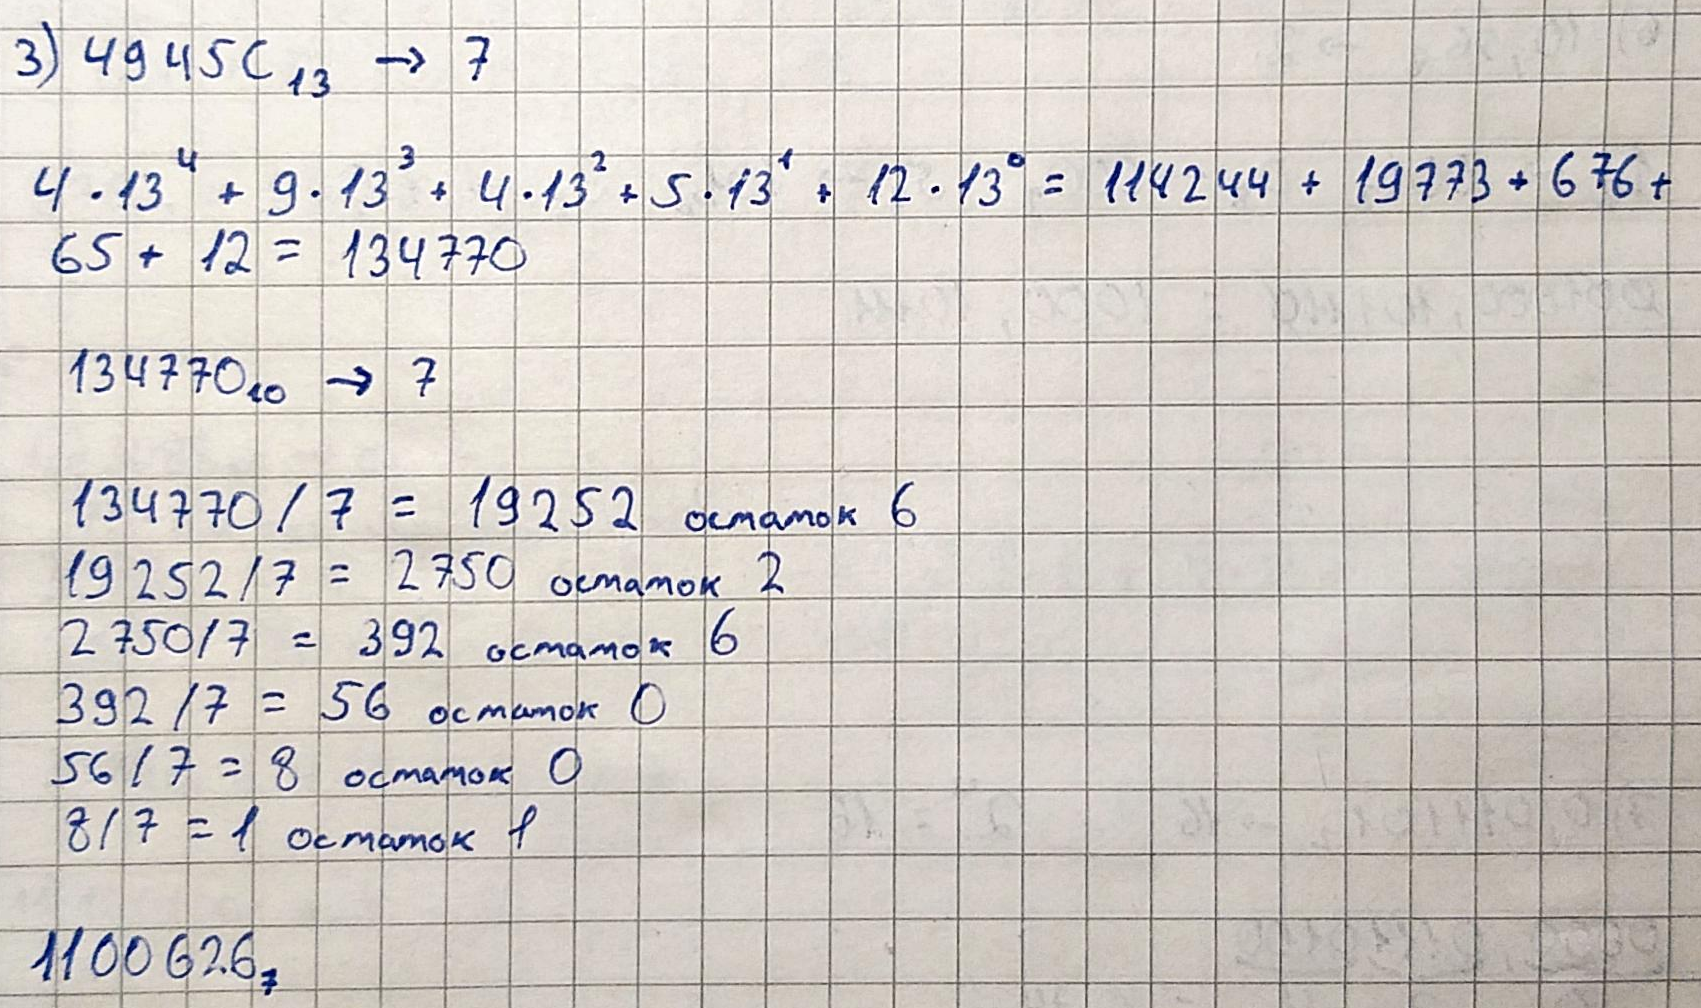 3) 4945C₁₃ → 7
4 · 13⁴ + 9 · 13³ + 4 · 13² + 5 · 13¹ + 12 · 13⁰ = 114244 + 19773 + 676 +
65 + 12 = 134770
134770₁₀ → 7
134770 / 7 = 19252 остаток 6
19252 / 7 = 2750 остаток 2
2750 / 7 = 392 остаток 6
392 / 7 = 56 остаток 0
56 / 7 = 8 остаток 0
8 / 7 = 1 остаток 1
1100626₇